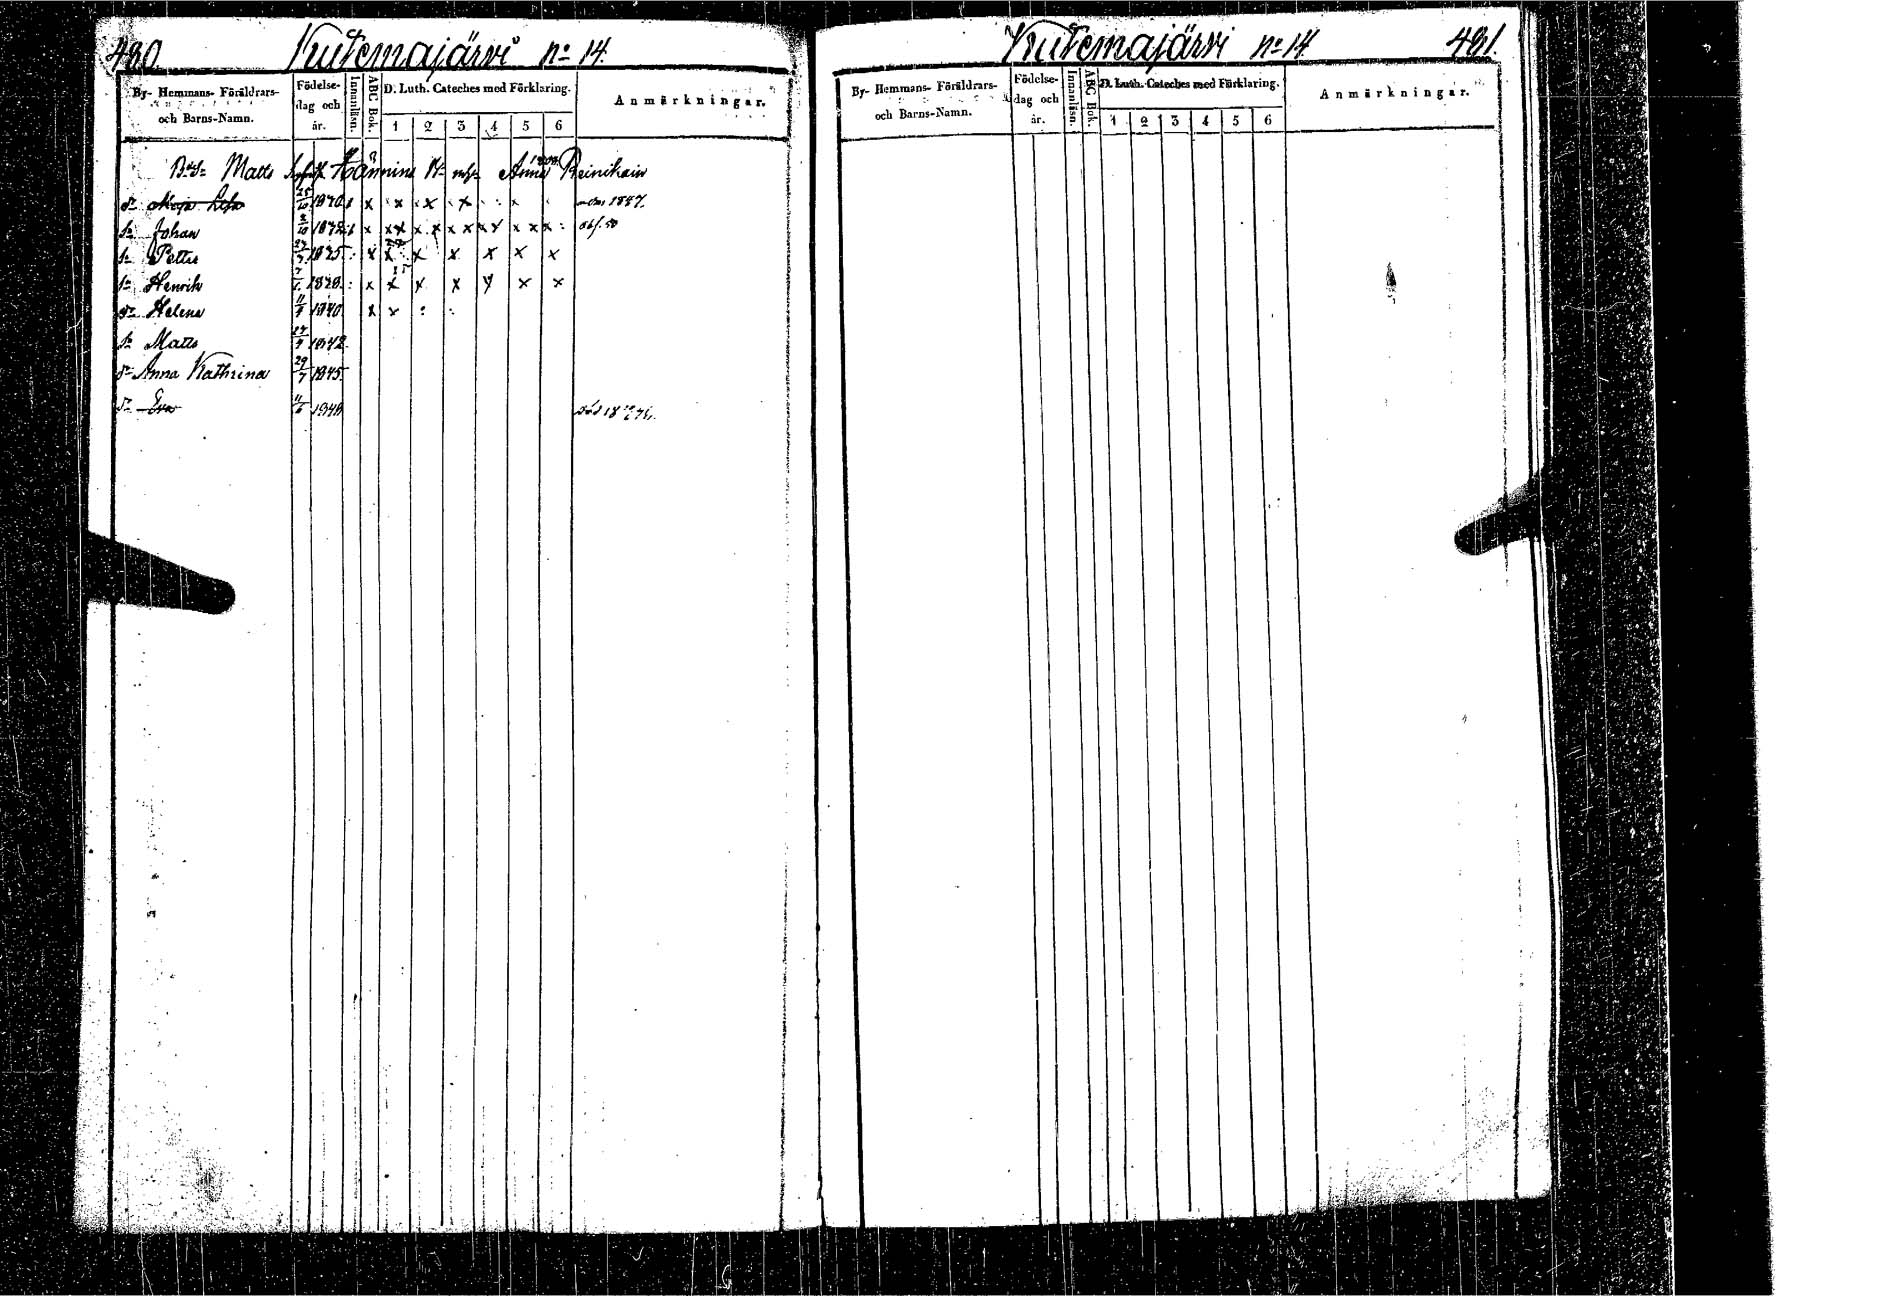 480. Kutemajärvi no 14.
By- Hemmans- Föräldrars- och Barns-Namn.
Födelse- dag och år.
Innanläsn.
ABC Bok.
D. Luth. Cateches med Förklaring.
1 2 3 4 5 6
Anmärkningar.
Matts Hänninen Anna Reinikain
dr Maja Lisa 25/10 1820 x x x x x 1847.
Sn Johan 2/10 x x x x x x x x x x x x
Sn Petter 1825 x x x x x x x
Sn Henrik x x x x x x x
dr Helena 11 1840 x x
Sn Matts 1842
dr Anna Kathrina 29/7 1845
dr Eva 11 död
Kutemajärvi no 14 481.
By- Hemmans- Föräldrars- och Barns-Namn.
Födelse- dag och år.
Innanläsn.
ABC Bok.
D. Luth. Cateches med Förklaring.
1 2 3 4 5 6
Anmärkningar.